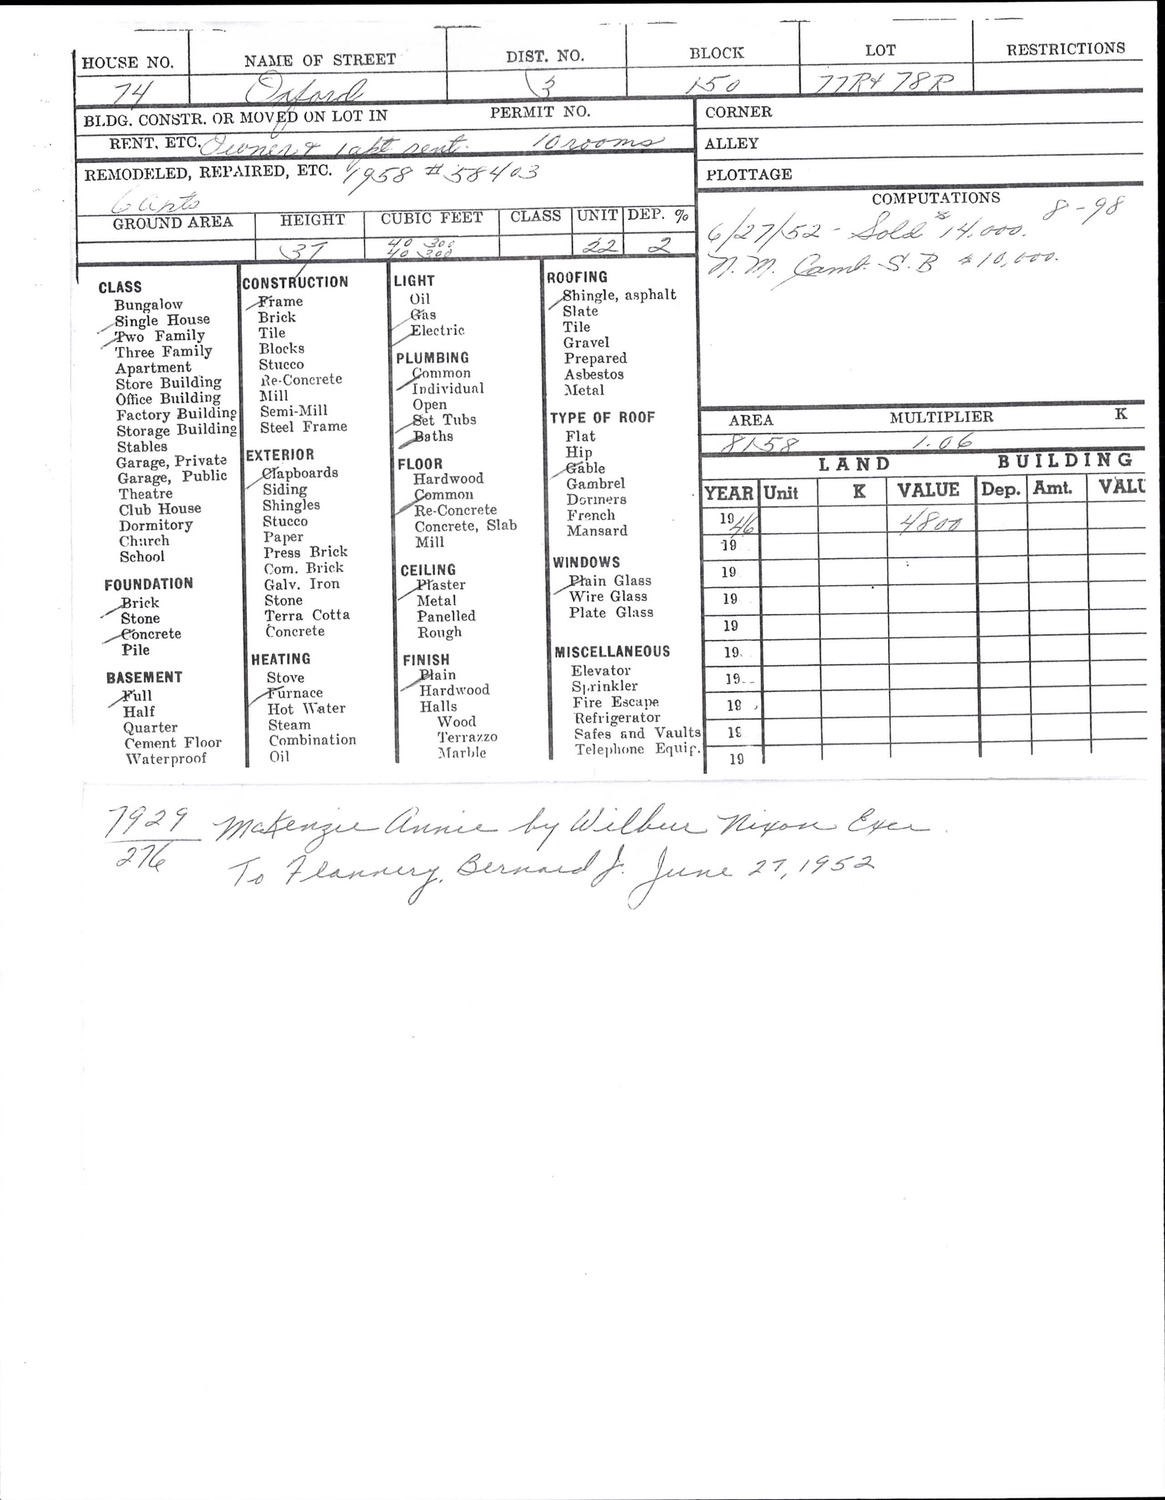 HOUSE NO. NAME OF STREET DIST. NO. BLOCK LOT RESTRICTIONS
74 Oxford 3 150 77R+78R
BLDG. CONSTR. OR MOVED ON LOT IN PERMIT NO.
RENT, ETC. Owner & 1 apt rent. 10 rooms
REMODELED, REPAIRED, ETC. 1958 # 58403
6 apts
GROUND AREA HEIGHT CUBIC FEET CLASS UNIT DEP. %
37 40 300 22 2
40 300
CORNER
ALLEY
PLOTTAGE
COMPUTATIONS
8-98
6/27/52 - Sold $14,000.
N. M. Camb. S. B $10,000.
AREA MULTIPLIER K
8158 1.06
LAND BUILDING
YEAR Unit K VALUE Dep. Amt. VALU
1946 4800
19
19
19
19
19
19
19
19
19
CLASS
Bungalow
Single House
Two Family
Three Family
Apartment
Store Building
Office Building
Factory Building
Storage Building
Stables
Garage, Private
Garage, Public
Theatre
Club House
Dormitory
Church
School
FOUNDATION
Brick
Stone
Concrete
Pile
BASEMENT
Full
Half
Quarter
Cement Floor
Waterproof
CONSTRUCTION
Frame
Brick
Tile
Blocks
Stucco
Re-Concrete
Mill
Semi-Mill
Steel Frame
EXTERIOR
Clapboards
Siding
Shingles
Stucco
Paper
Press Brick
Com. Brick
Galv. Iron
Stone
Terra Cotta
Concrete
HEATING
Stove
Furnace
Hot Water
Steam
Combination
Oil
LIGHT
Oil
Gas
Electric
PLUMBING
Common
Individual
Open
Set Tubs
Baths
FLOOR
Hardwood
Common
Re-Concrete
Concrete, Slab
Mill
CEILING
Plaster
Metal
Panelled
Rough
FINISH
Plain
Hardwood
Halls
Wood
Terrazzo
Marble
ROOFING
Shingle, asphalt
Slate
Tile
Gravel
Prepared
Asbestos
Metal
TYPE OF ROOF
Flat
Hip
Gable
Gambrel
Dormers
French
Mansard
WINDOWS
Plain Glass
Wire Glass
Plate Glass
MISCELLANEOUS
Elevator
Sprinkler
Fire Escape
Refrigerator
Safes and Vaults
Telephone Equip.
7929 McKenzie Annie by Wilbur Nixon Exer.
276 To Flannery, Bernard J. June 27, 1952